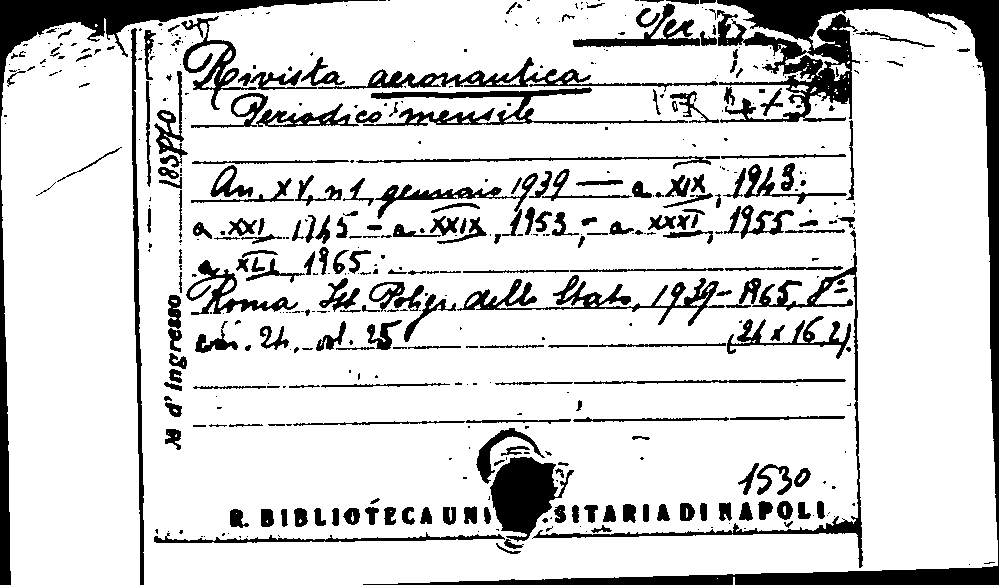 Per.
Rivista aeronautica
Periodico mensile
An. XV, n 1, gennaio 1939 — a. XIX, 1943;
a. XXI, 1945 – a. XXIX, 1953; – a. XXXI, 1955 – –
a. XLI, 1965;
Roma, Ist. Poligr. dello Stato, 1939–1965, 8°.
24. vol. 25 (24 x 16,2).
N d'ingresso 183770
1530
R. BIBLIOTECA UNI SITARIA DI NAPOLI